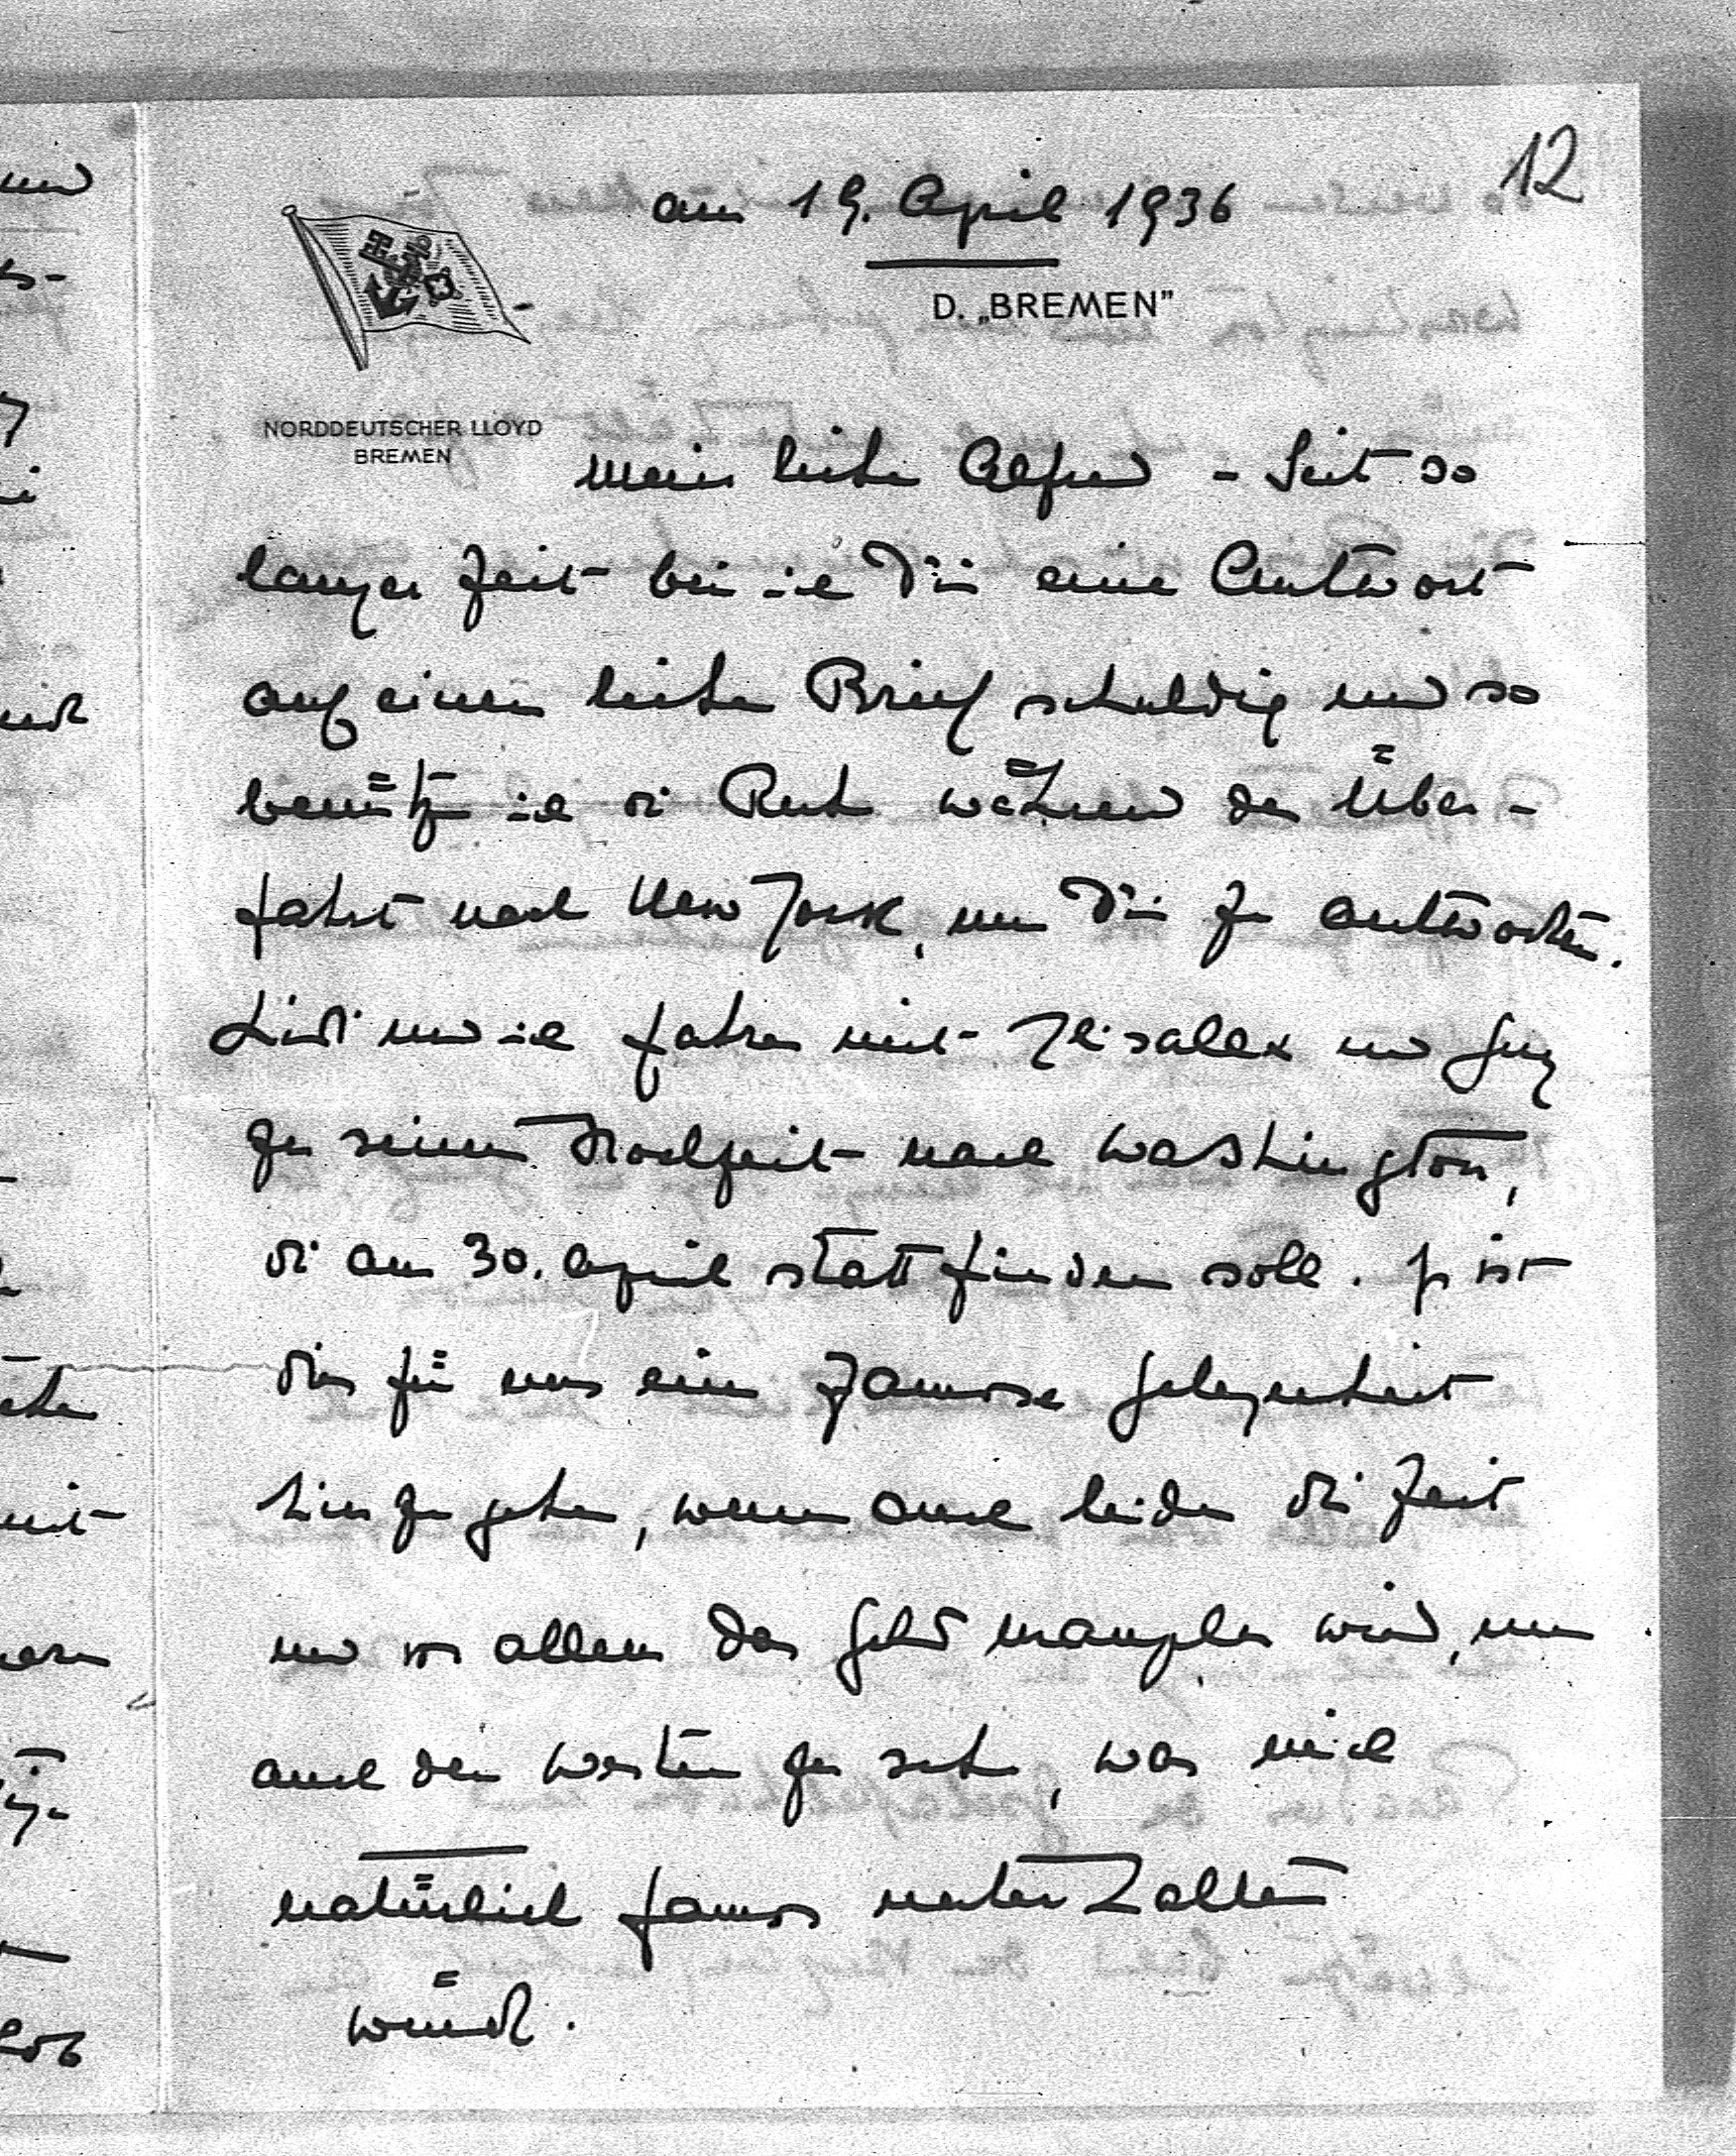 12
am 19. April 1936
D. „BREMEN”
NORDDEUTSCHER LLOYD
BREMEN
Mein lieber Alfred - Seit so
langer Zeit bin ich Dir eine Antwort
auf einen lieben Brief schuldig und so
benütze ich die Ruhe während der Über-
fahrt nach New York, um Dir zu antworten.
und ich fahren mit und
zu seiner Hochzeit nach Washington,
die am 30. April stattfinden soll. Es ist
dies für uns eine famose Gelegenheit
hinzugehen, wenn auch leider die Zeit
und vor allem das Geld mangeln wird, um
auch den Westen zu sehen, was mich
natürlich famos unterhalten
würde.